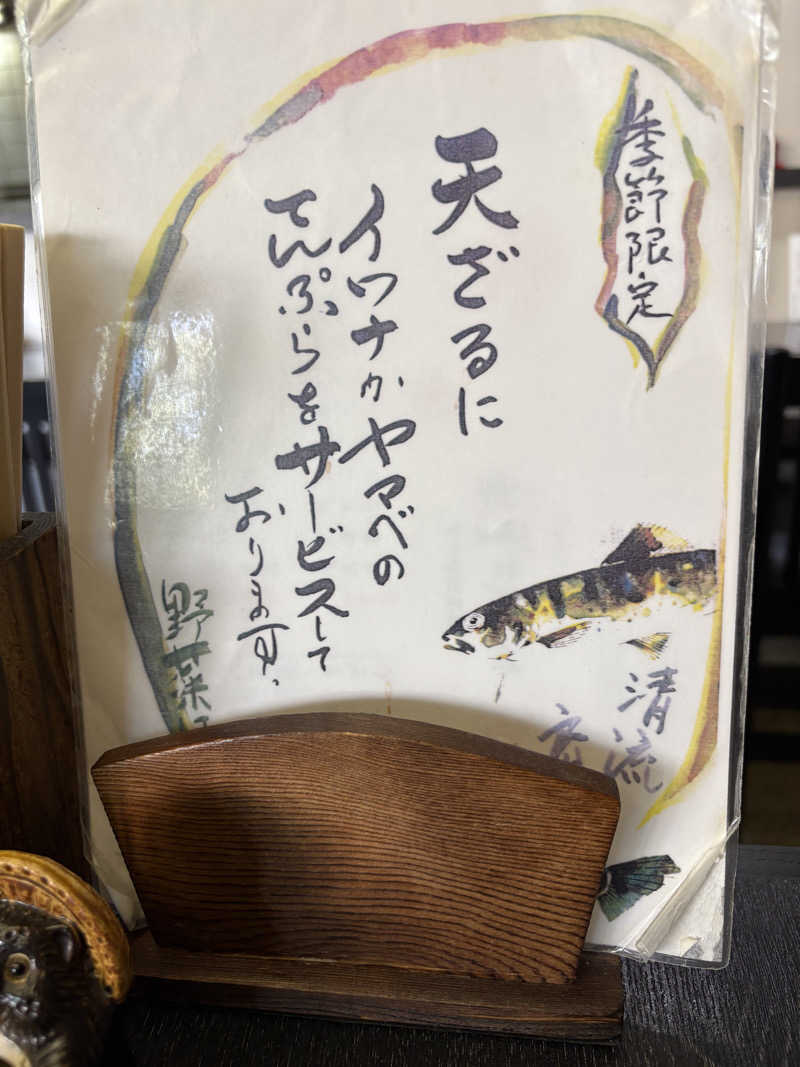 季節限定
天ざるに
イワナかヤマベの
てんぷらをサービスして
おります。
清流
野菜